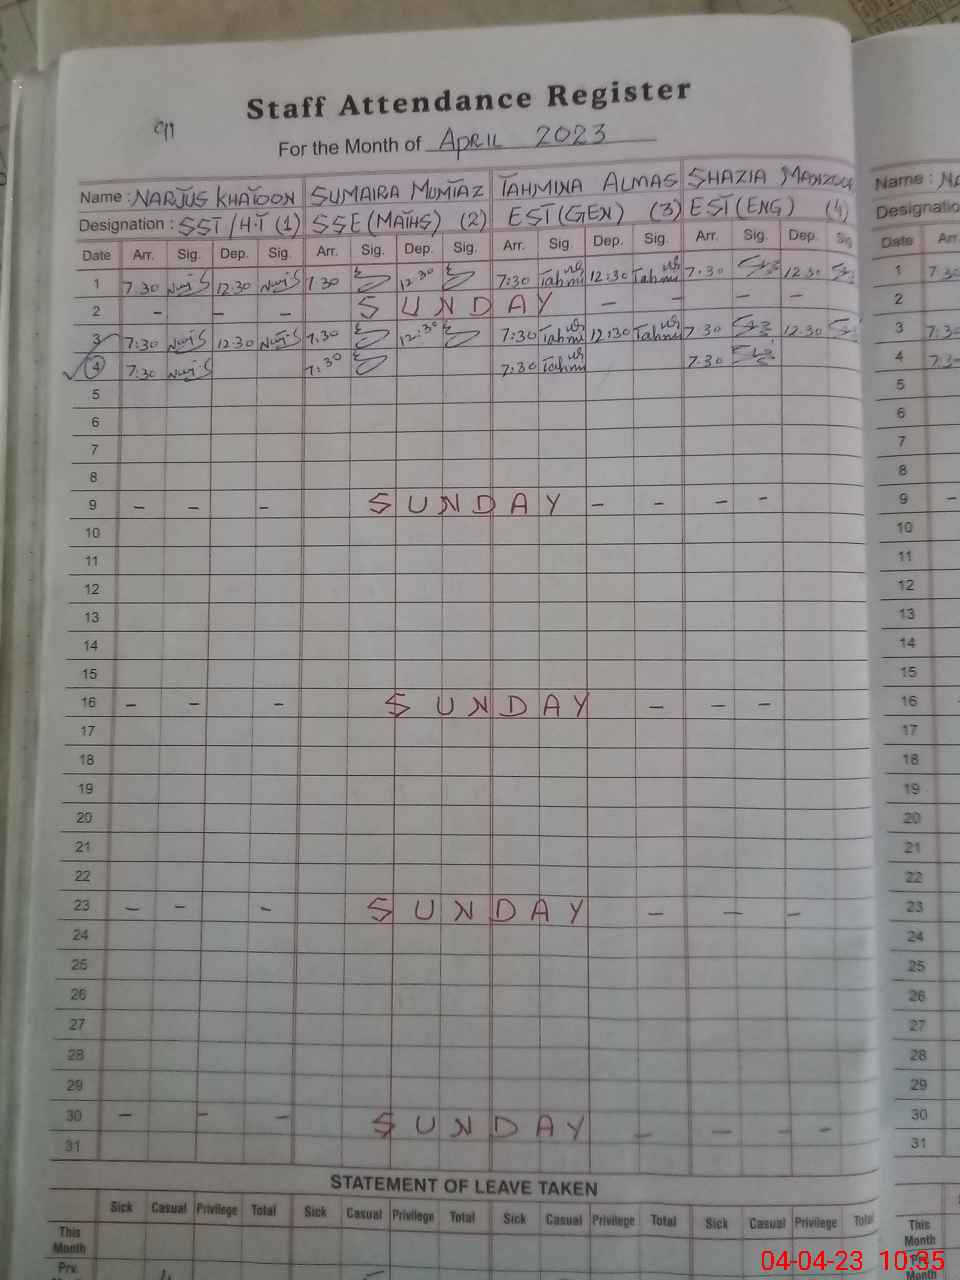 Staff Attendance Register
For the Month of APRIL 2023
Name : NARJUS KHATOON SUMAIRA MUMTAZ TAHMINA ALMAS SHAZIA
Designation : SST/H.T (1) SSE (MATHS) (2) EST (GEN) (3) EST (ENG) (4)
Date Arr. Sig. Dep. Sig. Arr. Sig. Dep. Sig. Arr. Sig. Dep. Sig. Arr. Sig. Dep. Sig
1 7.30 12.30 7.30 12.30 7:30 Tahmi 12:30 Tahmi 7.30 12.30
2 - - - SUNDAY - - - -
3 7:30 12.30 7.30 12:30 7:30 Tahmi 12:30 Tahmi 7.30 12.30
4 7.30 7.30 7:30 Tahmi 7.30
5
6
7
8
9 - - - SUNDAY - - - -
10
11
12
13
14
15
16 - - - SUNDAY - - -
17
18
19
20
21
22
23 - - - SUNDAY - - -
24
25
26
27
28
29
30 - - - SUNDAY - - - -
31
STATEMENT OF LEAVE TAKEN
Sick Casual Privilege Total Sick Casual Privilege Total Sick Casual Privilege Total Sick Casual Privilege Total
This Month
Prv.
Name :
Date Arr
1 7.30
2
3 7:3
4 7:3
5
6
7
8
9 -
10
11
12
13
14
15
16
17
18
19
20
21
22
23
24
25
26
27
28
29
30
31
This Month
Prv.
04-04-23 10:35